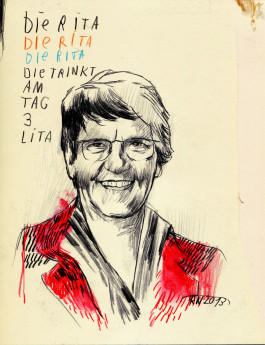 DIE RITA
DIE RITA
DIE RITA
DIE TRINKT
AM
TAG
3
LITA